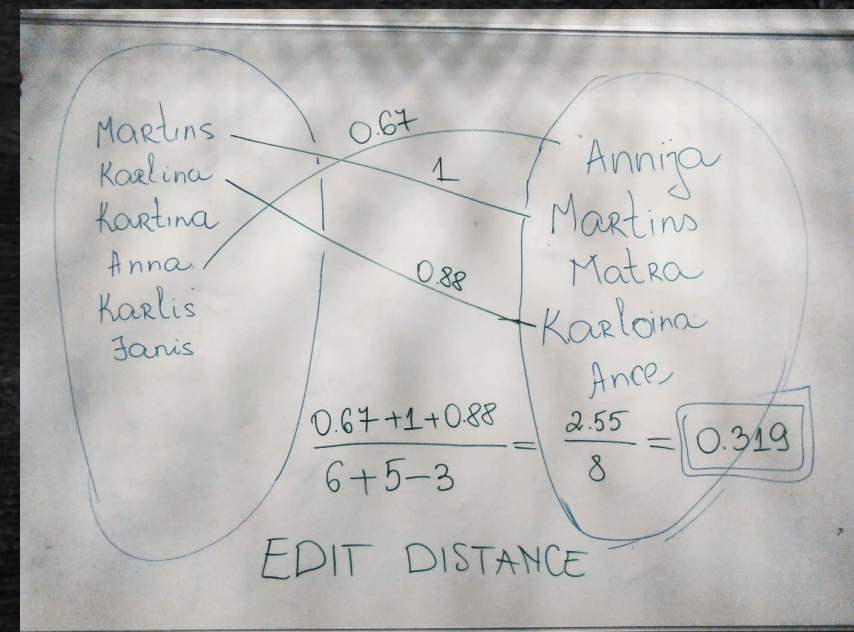 Martins
Karlina
Kartina
Anna
Karlis
Janis
0.67
1
0.88
Annija
Martins
Matra
Karloina
Ance
0.67+1+0.88
6+5-3
=
2.55
8
=
0.319
EDIT DISTANCE